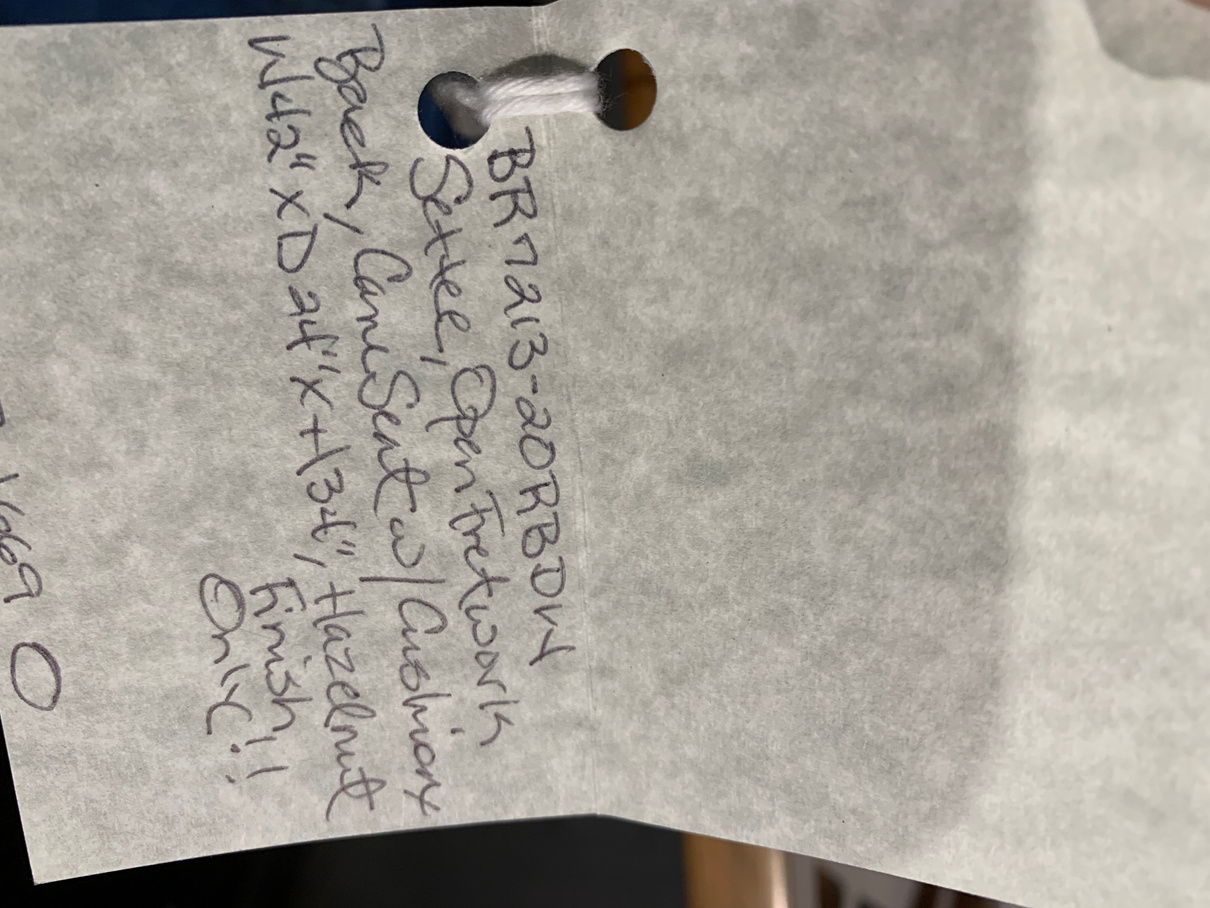 BR7213-20RBDW
Settee, Open Fretwork
Back, Cane Seat w/ Cushion
W42" x D 24" x H34", Hazelnut
Finish
Only!!
1669 0